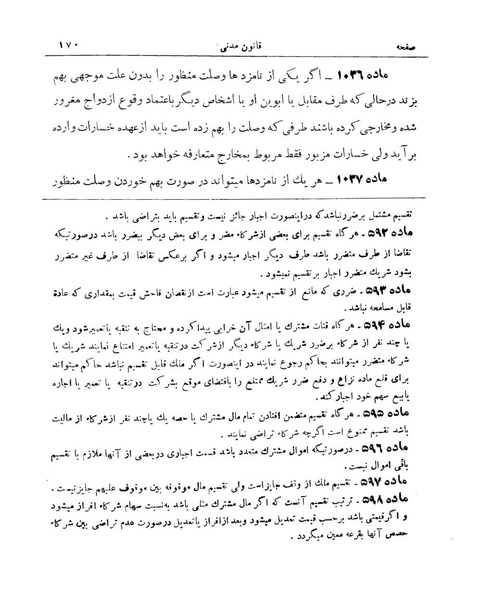 صفحه قانون مدنی ۱۷۰
ماده ۱۰۳۶ ـ اگر یکی از نامزد ها وصلت منظور را بدون علت موجهی بهم
بزند درحالی که طرف مقابل یا ابوین او یا اشخاص دیگر باعتماد وقوع ازدواج مغرور
شده ومخارجی کرده باشند طرفی که وصلت را بهم زده است باید ازعهده خسارات وارده
برآید ولی خسارات مزبور فقط مربوط بمخارج متعارفه خواهد بود .
ماده ۱۰۳۷ ـ هر یك از نامزدها میتواند در صورت بهم خوردن وصلت منظور
تقسیم مشتمل برضرر نباشد که دراینصورت اجبار جائز نیست وتقسیم باید بتراضی باشد .
ماده ۵۹۲ ـ هرگاه تقسیم برای بعضی ازشرکاء مضر و برای بعض دیگر بیضرر باشد درصورتیکه
تقاضا از طرف متضرر باشد طرف دیگر اجبار میشود و اگر برعکس تقاضا از طرف غیر متضرر
بشود شریك متضرر اجبار بر تقسیم نمیشود .
ماده ۵۹۳ ـ ضرری که مانع از تقسیم میشود عبارت است ازنقصان فاحش قیمت بمقداری که عادة
قابل مسامحه نباشد .
ماده ۵۹۴ ـ هرگاه قنات مشترك یا امثال آن خرابی پیداکرده و محتاج به تنقیه یاتعمیرشود ویك
یا چند نفر از شرکاء برضرر شریك یا شرکاء دیگر ازشرکت درتنقیه یاتعمیر امتناع نمایند شریك یا
شرکاء متضرر میتوانند بحاکم رجوع نمایند در اینصورت اگر ملك قابل تقسیم نباشد حاکم میتواند
برای قلع ماده نزاع و دفع ضرر شریك ممتنع را باقتضای موقع بشرکت درتنقیه یا تعمیر یا اجاره
یابیع سهم خود اجبار کند.
ماده ۵۹۵ ـ هرگاه تقسیم متضمن افتادن تمام مال مشترك یا حصه یك یاچند نفر ازشرکاء از مالیت
باشد تقسیم ممنوع است اگرچه شرکاء تراضی نمایند .
ماده ۵۹۶ ـ درصورتیکه اموال مشترك متعدد باشد قسمت اجباری دربعضی از آنها ملازم با تقسیم
باقی اموال نیست .
ماده ۵۹۷ ـ تقسیم ملك از وقف جایزاست ولی تقسیم مال موقوفه بین موقوف علیهم جایزنیست .
ماده ۵۹۸ ـ ترتیب تقسیم آنست که اگر مال مشترك مثلی باشد به‌نسبت سهام شرکاء افراز میشود
و اگرقیمتی باشد برحسب قیمت تعدیل میشود وبعد ازافراز یاتعدیل درصورت عدم تراضی بین شرکاء
حصص آنها بقرعه معین میگردد .